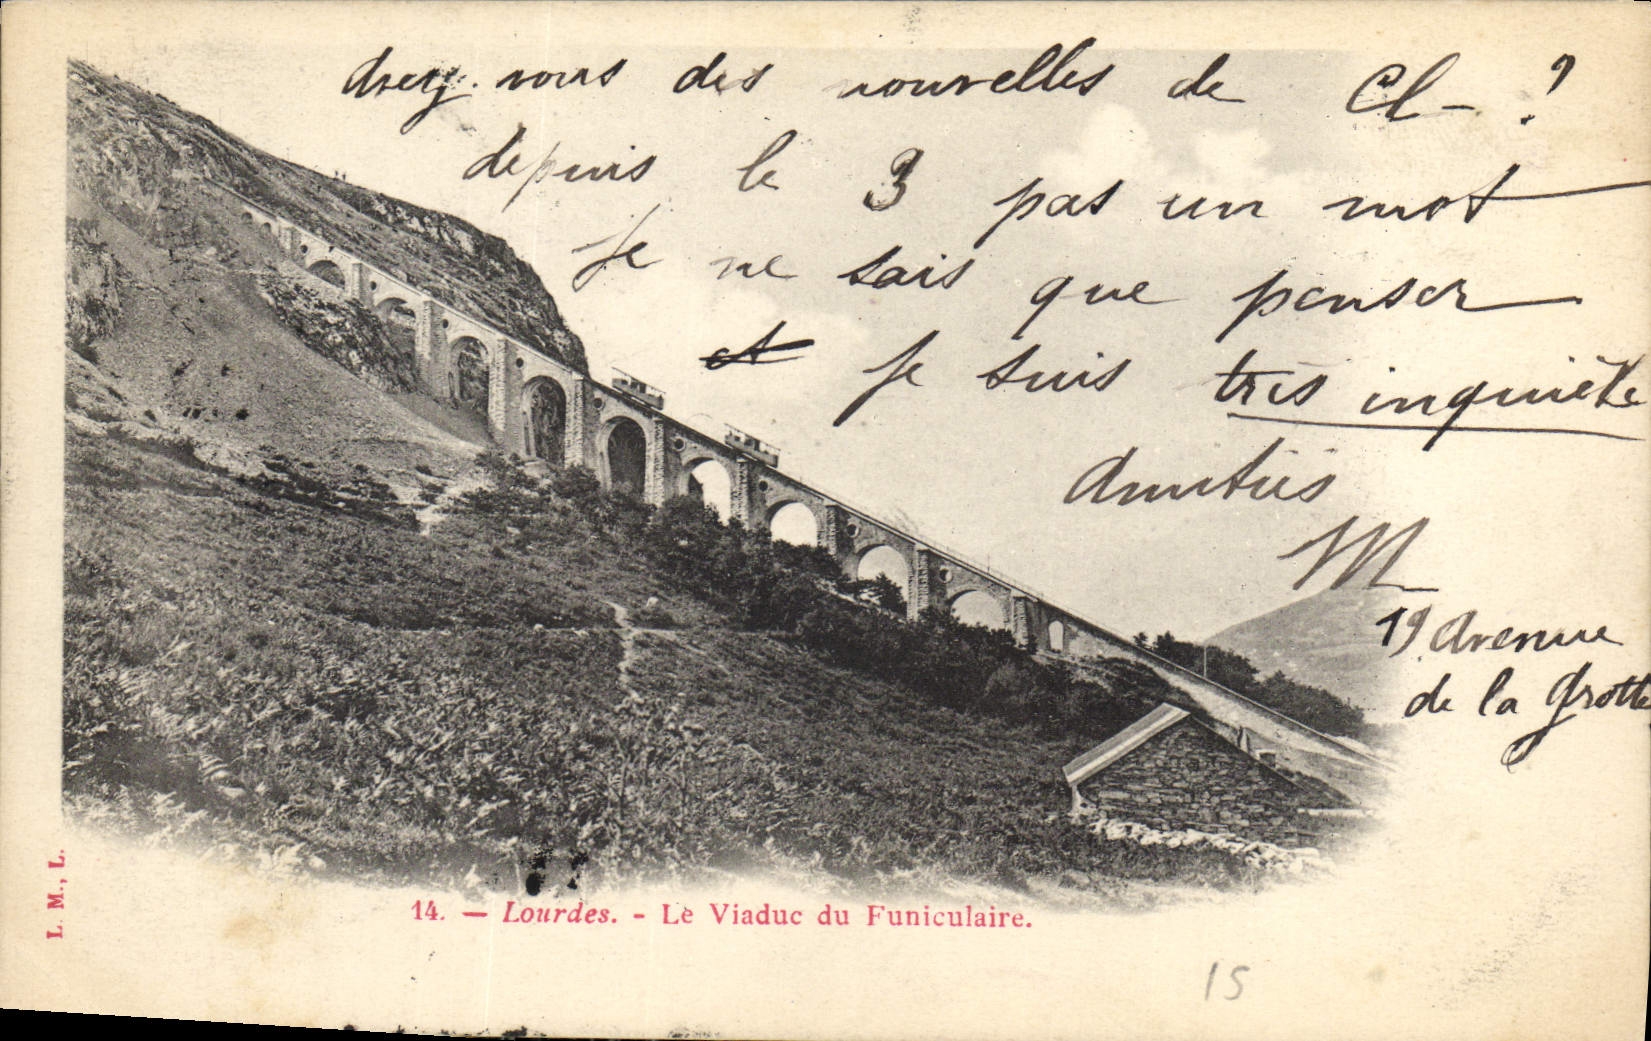 Avez-vous des nouvelles de Cl- ?
depuis le 3 pas un mot
Je ne sais que penser
et je suis très inquiète
Amitiés
M
19 Avenue
de la Grotte
14. — Lourdes. - Le Viaduc du Funiculaire.
L. M., L.
15